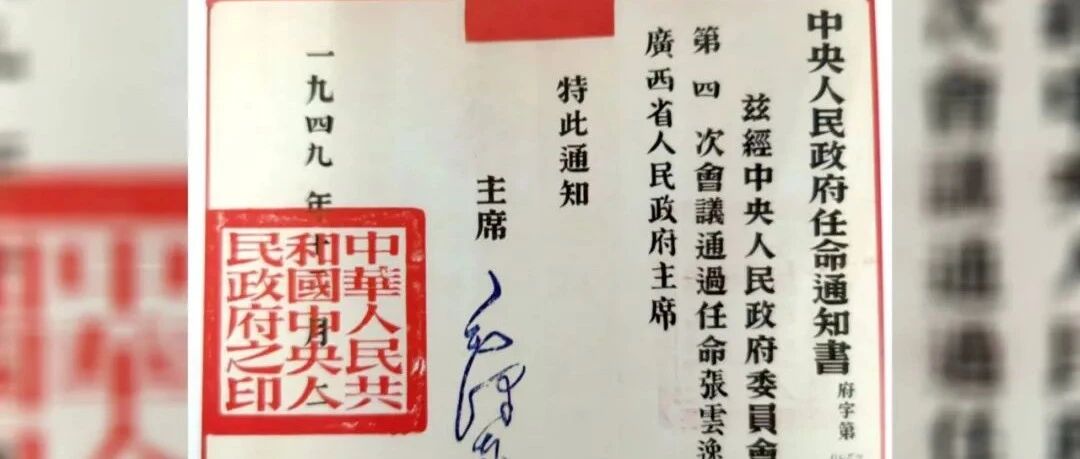 中央人民政府任命通知書
府字第
兹經中央人民政府委員會
第四次會議通過任命張雲逸
廣西省人民政府主席
特此通知
主席
毛澤东
一九四九年十二月二
中華人民共
和國中央人
民政府之印